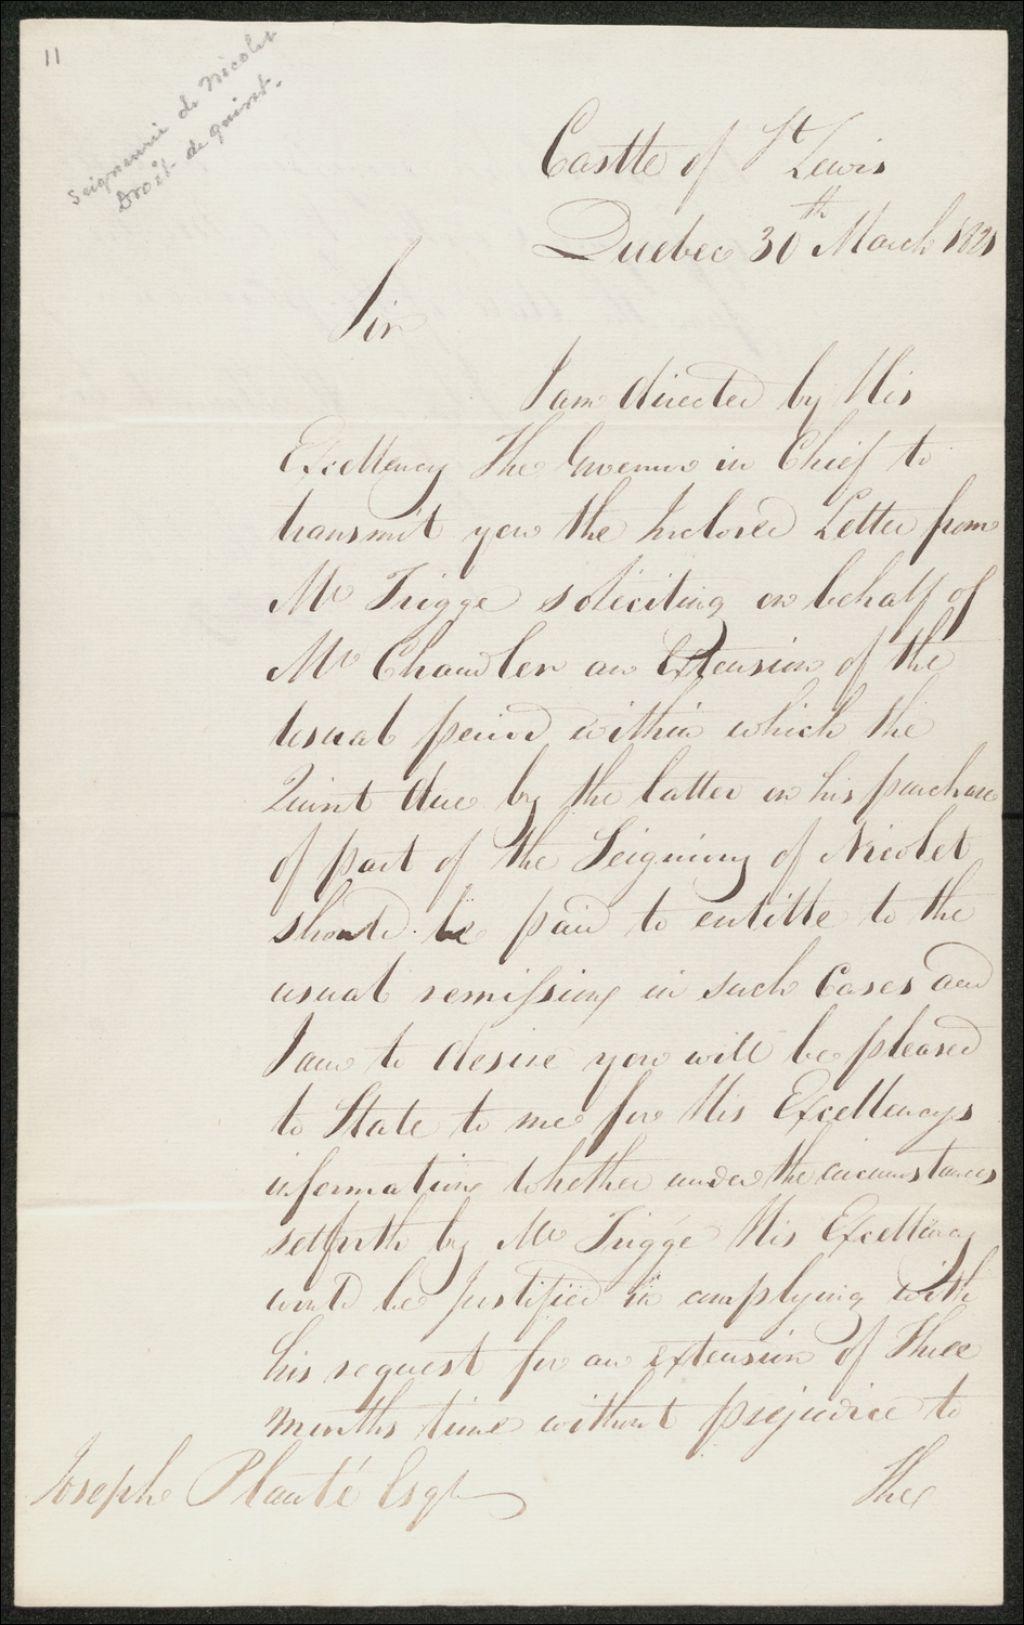 11
Seigneurie de Nicolet
Droit de quint.
Castle of St Lewis
Quebec 30th March 1821
Sir
I am directed by His
Excellency The Governor in Chief to
transmit you the Inclosed Letter from
Mr Trigge soliciting on behalf of
Mr Chandler an Extension of the
usual period within which the
Quint due by the latter on his purchase
of part of the Seigniory of Nicolet
should be paid to entitle to the
usual remission in such Cases and
I am to desire you will be pleased
to State to me for His Excellencys
information whether under the circumstances
setforth by Mr Trigge His Excellency
would be Justified in complying with
his request for an extension of Three
months time without prejudice to
Joseph Planté Esqr
The